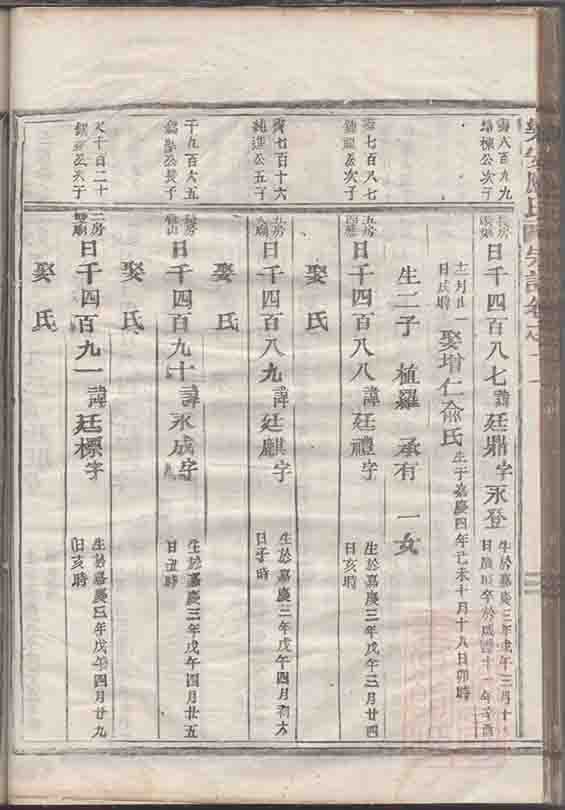 六百九九
棟公次子
長房
日千四百八七諱廷鼎字永登
生於嘉慶三年戊午三月十
日辰時卒於咸豐十一年辛酉
十二月廿一
日戌時
娶增仁俞氏
生于嘉慶四年己未十月十九日卯時
生二子 植羅 承有 一女
七百八七
公次子
五房
日千四百八八諱廷禮字
生於嘉慶三年戊午三月廿四
日亥時
娶氏
七百十六
純選公五子
五房
日千四百八九諱廷麒字
生於嘉慶三年戊午四月初六
日子時
娶氏
千九百六五
公長子
日千四百九十諱永成字
生於嘉慶三年戊午四月廿五
日丑時
娶氏
天千百二十
公次子
二房
日千四百九一諱廷標字
生於嘉慶三年戊午四月廿九
日亥時
娶氏